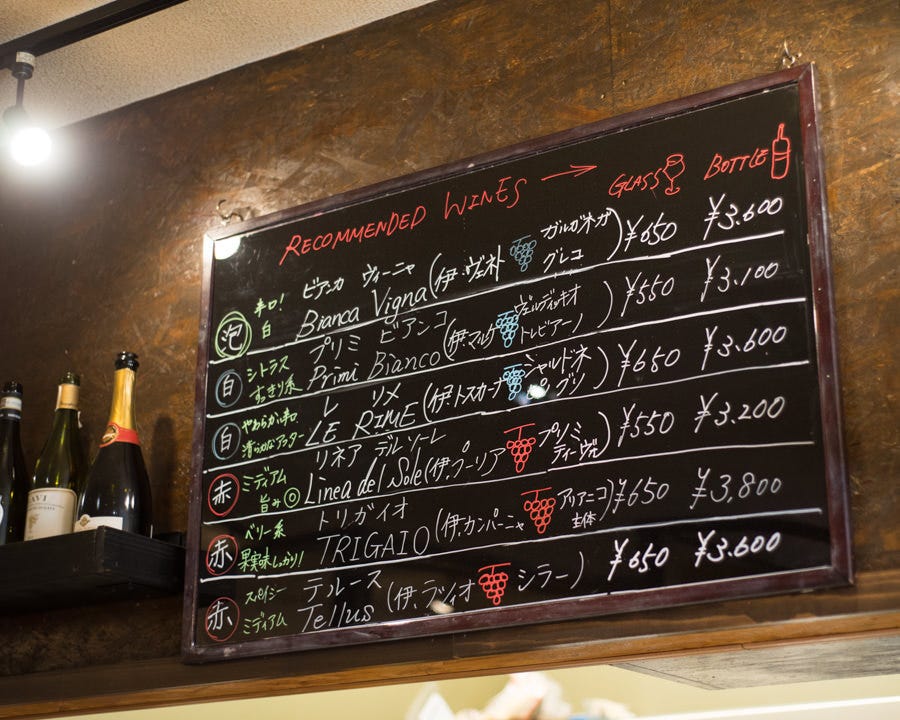 RECOMMENDED WINES → GLASS BOTTLE
泡 辛口! 白 ビアンカ ヴィーニャ
Bianca Vigna (伊・ヴェネト ガルガネガ グレコ) ¥650 ¥3.600
白 シトラス すっきり系 プリミ ビアンコ
Primi Bianco (伊.マルケ ヴェルディッキオ トレビアーノ) ¥550 ¥3.100
白 やわらか辛口 レ リメ
LE RIME (伊トスカーナ シャルドネ ピノグリ) ¥650 ¥3.600
赤 ミディアム 旨み◎ リネア デル ソーレ
Linea del Sole (伊.プーリア プリミティーヴォ) ¥550 ¥3.200
赤 ベリー系 果実味しっかり! トリガイオ
TRIGAIO (伊.カンパーニャ アリアニコ主体) ¥650 ¥3,800
赤 スパイシー ミディアム テルース
Tellus (伊.ラツィオ シラー) ¥650 ¥3.600